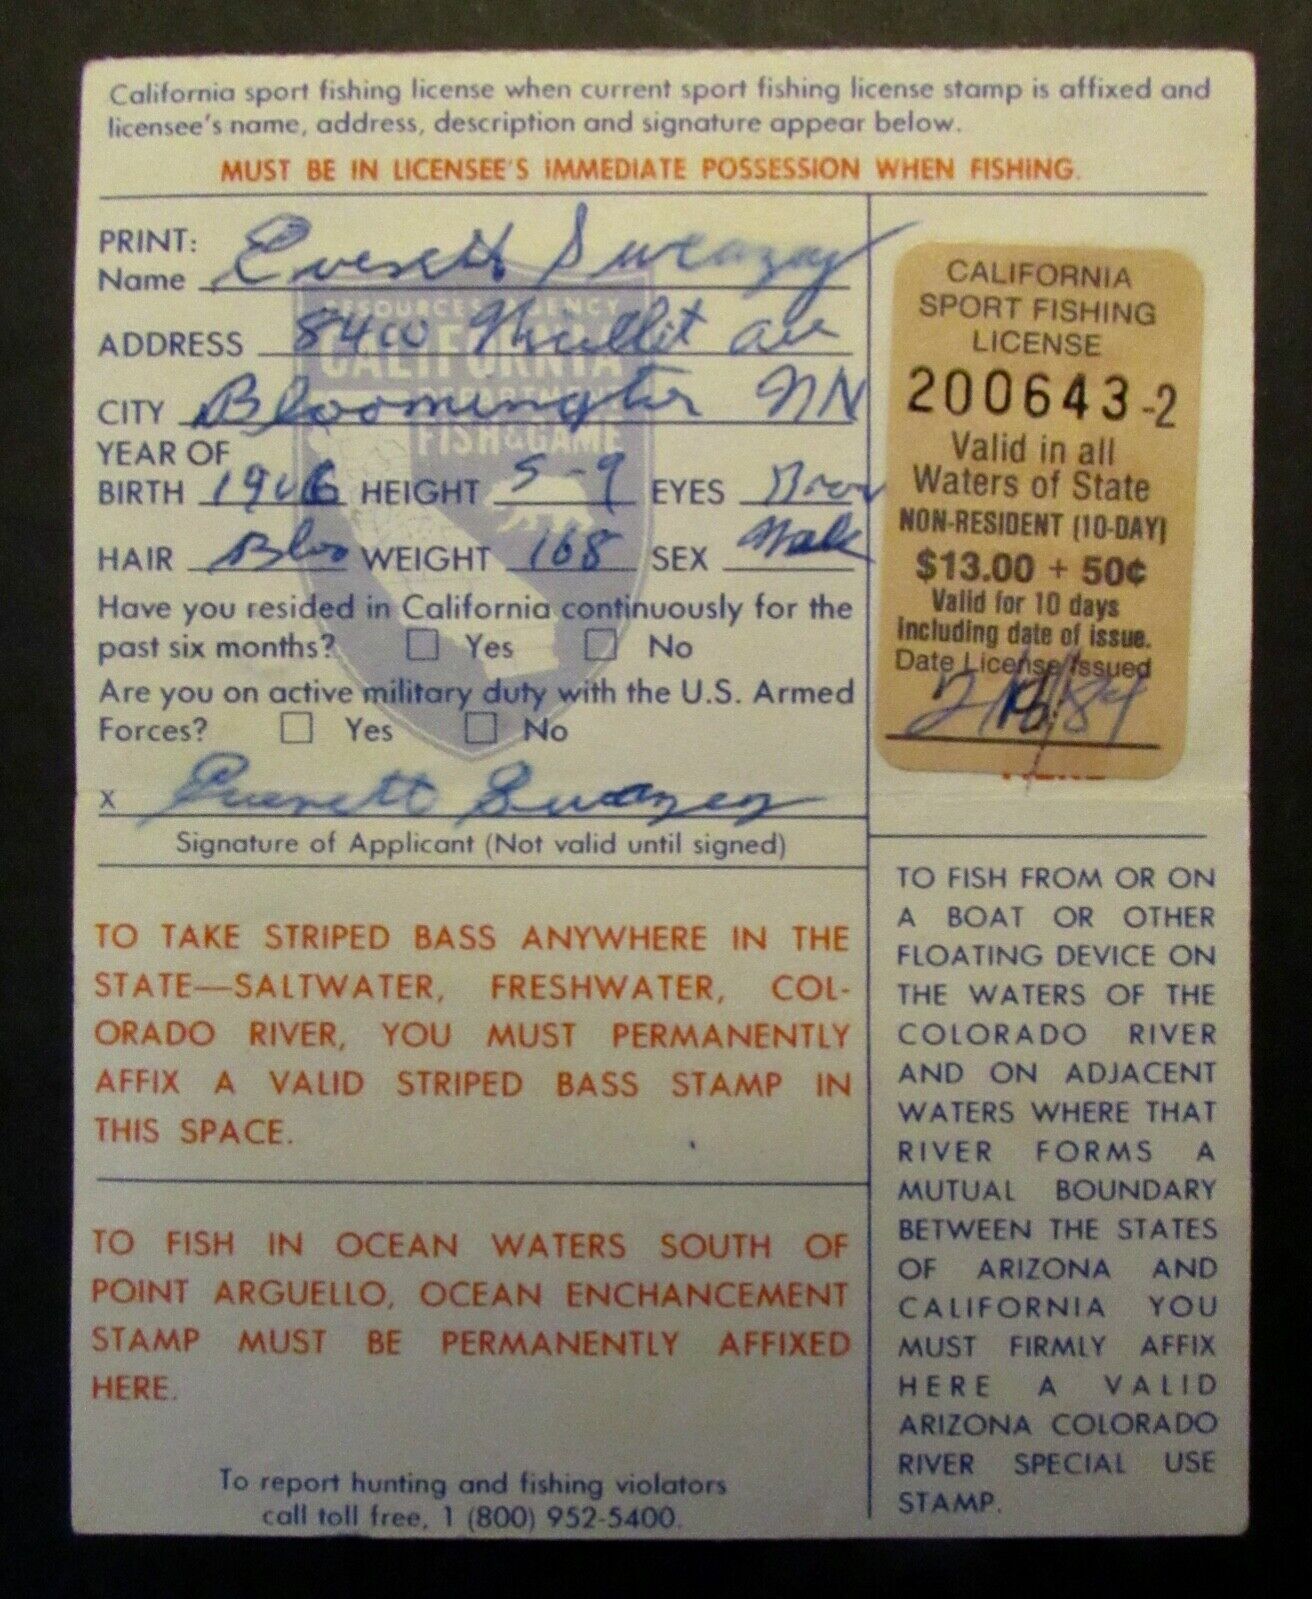 California sport fishing license when current sport fishing license stamp is affixed and
licensee's name, address, description and signature appear below.
MUST BE IN LICENSEE'S IMMEDIATE POSSESSION WHEN FISHING.
PRINT:
Name Everett Sweazey
RESOURCES AGENCY
CALIFORNIA
DEPARTMENT
FISH & GAME
ADDRESS 8400 Ave
CITY Bloomington MN
YEAR OF
BIRTH 1906 HEIGHT 5-9 EYES Brow
HAIR WEIGHT 168 SEX Male
Have you resided in California continuously for the
past six months? Yes No
Are you on active military duty with the U.S. Armed
Forces? Yes No
X Everett Sweazey
Signature of Applicant (Not valid until signed)
CALIFORNIA
SPORT FISHING
LICENSE
200643-2
Valid in all
Waters of State
NON-RESIDENT (10-DAY)
$13.00 + 50¢
Valid for 10 days
including date of issue.
Date License Issued
HERE
TO TAKE STRIPED BASS ANYWHERE IN THE
STATE—SALTWATER, FRESHWATER, COL-
ORADO RIVER, YOU MUST PERMANENTLY
AFFIX A VALID STRIPED BASS STAMP IN
THIS SPACE.
TO FISH IN OCEAN WATERS SOUTH OF
POINT ARGUELLO, OCEAN ENCHANCEMENT
STAMP MUST BE PERMANENTLY AFFIXED
HERE.
To report hunting and fishing violators
call toll free, 1 (800) 952-5400.
TO FISH FROM OR ON
A BOAT OR OTHER
FLOATING DEVICE ON
THE WATERS OF THE
COLORADO RIVER
AND ON ADJACENT
WATERS WHERE THAT
RIVER FORMS A
MUTUAL BOUNDARY
BETWEEN THE STATES
OF ARIZONA AND
CALIFORNIA YOU
MUST FIRMLY AFFIX
HERE A VALID
ARIZONA COLORADO
RIVER SPECIAL USE
STAMP.